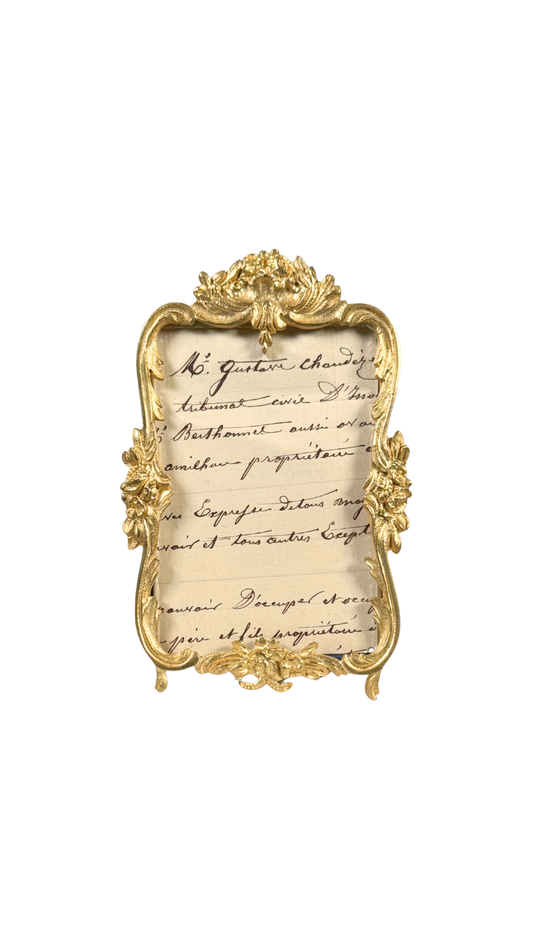 Mr. Gustave Chaudéz
tribunal civil D'Isso
Berthonnet aussi avou
amilhau propriétaire
Expresse de tous moy
voir et tous autres Except
pouvoir D'occuper et occup
père et fils propriétaire